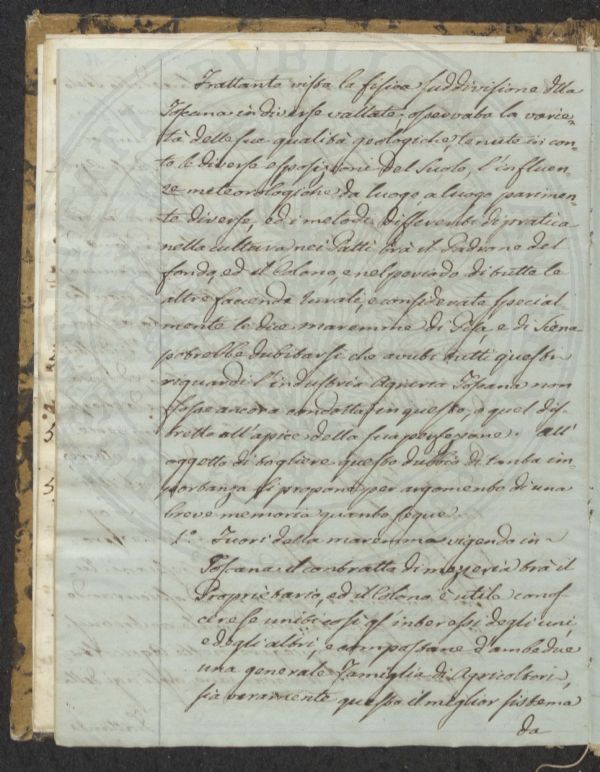 Frattanto vista la fisica suddivisione della
Toscana in diverse vallate; osservata la varie-
tà delle sue qualità geologiche tenute in con-
to le diverse esposizioni del suolo, l'influen-
ze meteorologiche da luogo a luogo parimen-
te diverse, ed i metodi differenti di pratica
nella cultura nei Patti trà il Padrone del
fondo, ed il Colono, e nel periodo di tutte le
altre faccende rurali, e considerate special
mente le due maremme di Pisa, e di Siena
potrebbe dubitarsi che avuti tutti questi
riguardi l'industria Agraria Toscana non
fosse ancora condotta in questo, o quel dis-
tretto all'apice della sua perfezione. All'
oggetto di togliere questo dubbio di tanta im-
portanza si propone per argomento di una
breve memoria quanto segue.
1.° Fuori della maremma vigendo in
Toscana il contratto di mezzeria trà il
Proprietario, ed il Colono è utile conos-
cere se uniti così gl' interessi degli uni,
e degli altri, e composta d'ambedue
una generale Famiglia di Agricoltori,
sia veramente questo il miglior sistema
da